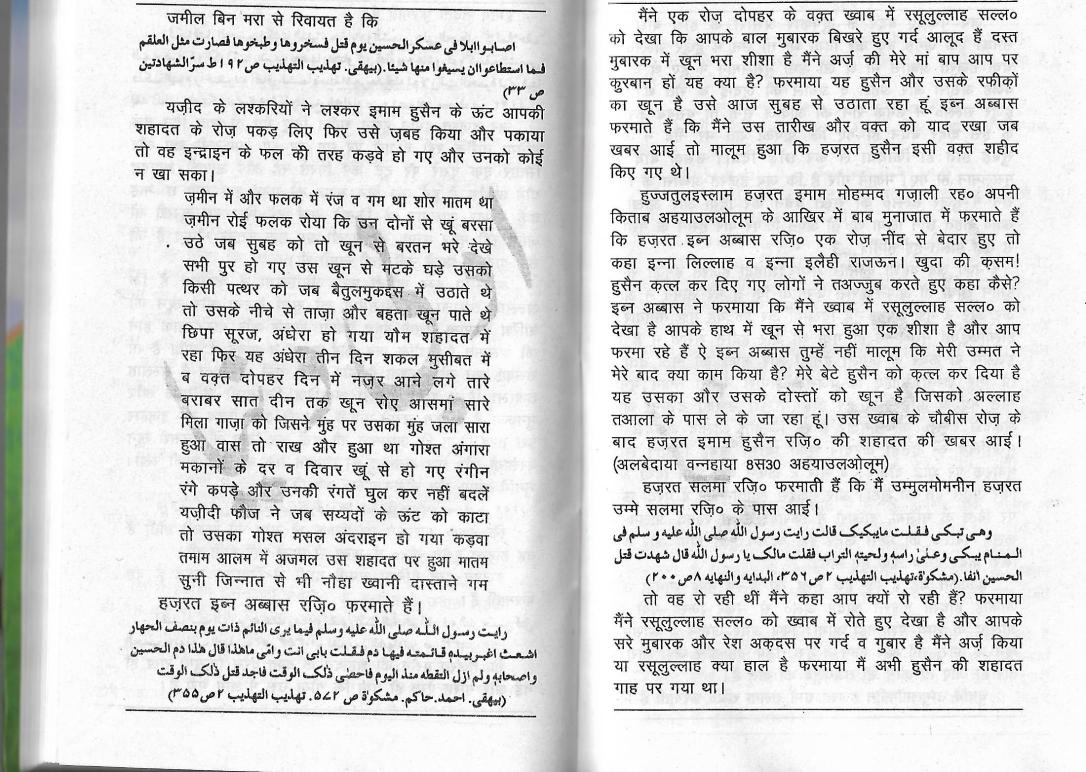 जमील बिन मरा से रिवायत है कि
اصابوا ابلا فی عسکر الحسین یوم قتل فسخروها وطبخوها فصارت مثل العلقم
فما استطاعوا ان یسیغوا منها شیئا. (بیهقی. تهذیب التهذیب ص۱۹۲ ط سرّ الشهادتین
ص ۳۳)
यज़ीद के लश्करियों ने लश्कर इमाम हुसैन के ऊंट आपकी
शहादत के रोज़ पकड़ लिए फिर उसे ज़बह किया और पकाया
तो वह इन्द्राइन के फल की तरह कड़वे हो गए और उनको कोई
न खा सका।
ज़मीन में और फलक में रंज व गम था शोर मातम था
ज़मीन रोई फलक रोया कि उन दोनों से खूं बरसा
उठे जब सुबह को तो खून से बरतन भरे देखे
सभी पुर हो गए उस खून से मटके घड़े उसको
किसी पत्थर को जब बैतुलमुकद्दस में उठाते थे
तो उसके नीचे से ताज़ा और बहता खून पाते थे
छिपा सूरज, अंधेरा हो गया यौम शहादत में
रहा फिर यह अंधेरा तीन दिन शकल मुसीबत में
ब वक़्त दोपहर दिन में नज़र आने लगे तारे
बराबर सात दीन तक खून रोए आसमां सारे
मिला गाज़ा को जिसने मुंह पर उसका मुंह जला सारा
हुआ वास तो राख और हुआ था गोश्त अंगारा
मकानों के दर व दिवार खूं से हो गए रंगीन
रंगे कपड़े और उनकी रंगतें घुल कर नहीं बदलें
यज़ीदी फौज ने जब सय्यदों के ऊंट को काटा
तो उसका गोश्त मसल अंदराइन हो गया कड़वा
तमाम आलम में अजमल उस शहादत पर हुआ मातम
सुनी जिन्नात से भी नौहा ख्वानी दास्ताने गम
हज़रत इब्न अब्बास रज़ि० फरमाते हैं।
رایت رسول اللّٰه صلی اللّٰه علیه وسلم فیما یری النائم ذات یوم بنصف الحهار
اشعث اغبر بیدہ قائمته فیها دم فقلت بابی انت وامّی ماهذا قال هٰذا دم الحسین
واصحابه ولم ازل التقطه منذ الیوم فاحضٰی ذلک الوقت فاجد قتل ذلک الوقت
(بیهقی. احمد. حاکم. مشکوٰۃ ص ۵۷۲. تهذیب التهذیب ۲ ص۳۵۵)
मैंने एक रोज़ दोपहर के वक़्त ख्वाब में रसूलुल्लाह सल्ल०
को देखा कि आपके बाल मुबारक बिखरे हुए गर्द आलूद हैं दस्त
मुबारक में खून भरा शीशा है मैंने अर्ज़ की मेरे मां बाप आप पर
कुरबान हों यह क्या है? फरमाया यह हुसैन और उसके रफीक़ों
का खून है उसे आज सुबह से उठाता रहा हूं इब्न अब्बास
फरमाते हैं कि मैंने उस तारीख और वक्त को याद रखा जब
खबर आई तो मालूम हुआ कि हज़रत हुसैन इसी वक़्त शहीद
किए गए थे।
हुज्जतुलइस्लाम हज़रत इमाम मोहम्मद गज़ाली रह० अपनी
किताब अहयाउलओलूम के आखिर में बाब मुनाजात में फरमाते हैं
कि हज़रत इब्न अब्बास रज़ि० एक रोज़ नींद से बेदार हुए तो
कहा इन्ना लिल्लाह व इन्ना इलैही राजऊन। खुदा की क़सम!
हुसैन कत्ल कर दिए गए लोगों ने तअज्जुब करते हुए कहा कैसे?
इब्न अब्बास ने फरमाया कि मैंने ख्वाब में रसूलुल्लाह सल्ल० को
देखा है आपके हाथ में खून से भरा हुआ एक शीशा है और आप
फरमा रहे हैं ऐ इब्न अब्बास तुम्हें नहीं मालूम कि मेरी उम्मत ने
मेरे बाद क्या काम किया है? मेरे बेटे हुसैन को क़त्ल कर दिया है
यह उसका और उसके दोस्तों को खून है जिसको अल्लाह
तआला के पास ले के जा रहा हूं। उस ख्वाब के चौबीस रोज़ के
बाद हज़रत इमाम हुसैन रज़ि० की शहादत की खबर आई।
(अलबेदाया वन्नहाया 8स30 अहयाउलओलूम)
हज़रत सलमा रज़ि० फरमाती हैं कि मैं उम्मुलमोमनीन हज़रत
उम्मे सलमा रज़ि० के पास आई।
وهی تبکی فقلت مایبکیک قالت رایت رسول اللّٰه صلی اللّٰه علیه و سلم فی
المنام یبکی وعلیٰ راسه ولحیته التراب فقلت مالک یا رسول اللّٰه قال شهدت قتل
الحسین انفا. (مشکوٰۃ، تهذیب التهذیب ۲ ص۳۵۶، البدایه والنهایه ۸ ص۲۰۰)
तो वह रो रही थीं मैंने कहा आप क्यों रो रही हैं? फरमाया
मैंने रसूलुल्लाह सल्ल० को ख्वाब में रोते हुए देखा है और आपके
सरे मुबारक और रेश अक़दस पर गर्द व गुबार है मैंने अर्ज़ किया
या रसूलुल्लाह क्या हाल है फरमाया मैं अभी हुसैन की शहादत
गाह पर गया था।